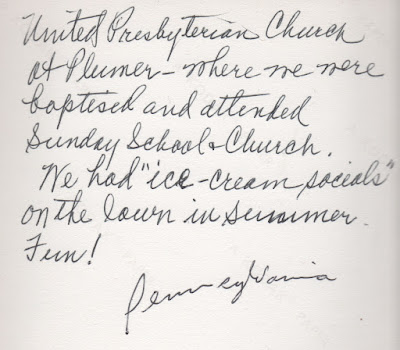 United Presbyterian Church
at Plumer - where we were
baptised and attended
Sunday School & Church.
We had "ice-cream socials"
on the lawn in summer.
Fun!
Pennsylvania